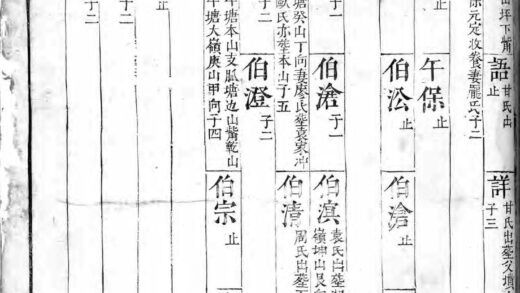 語 甘氏出
止
詳 甘氏出葬父墳
子三
保元定收養妻羅氏子二
午保 止
伯㳂 止
伯滄 止
子一
伯滄 子一
伯滇 袁氏出葬
嶺坤山艮向
塘癸山丁向妻廖氏葬袁家冲
歐氏亦葬本山子五
伯清 周氏出葬
子二
伯澄 子二
塘本山支脈塘边山觜乾山
塘大嶺庚山甲向子四
伯宗 止
止
子二
子二